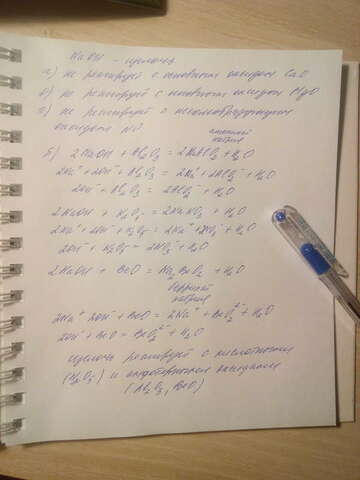 NaOH - щелочь
а) не реагирует с основным оксидом CaO
в) не реагирует с основным оксидом MgO
г) не реагирует с несолеобразующим
оксидом NO
б) 2NaOH + Al₂O₃ = 2NaAlO₂ + H₂O
натрия
2Na⁺ + 2OH⁻ + Al₂O₃ = 2Na⁺ + 2AlO₂⁻ + H₂O
2OH⁻ + Al₂O₃ = 2AlO₂⁻ + H₂O
2NaOH + N₂O₅ = 2NaNO₃ + H₂O
2Na⁺ + 2OH⁻ + N₂O₅ = 2Na⁺ + 2NO₃⁻ + H₂O
2OH⁻ + N₂O₅ = 2NO₃⁻ + H₂O
2NaOH + BeO = Na₂BeO₂ + H₂O
бериллат
натрия
2Na⁺ + 2OH⁻ + BeO = 2Na⁺ + BeO₂²⁻ + H₂O
2OH⁻ + BeO = BeO₂²⁻ + H₂O
щелочь реагирует с кислотными
(N₂O₅) и амфотерными оксидами
(Al₂O₃, BeO)